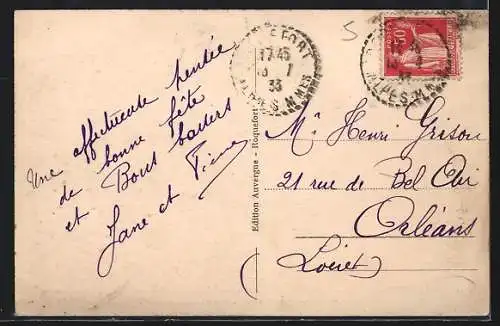 Une affectueuse pensée
de bonne fête
et Bons baisers
Jane et Pierre
Edition Auvergne - Roquefort
FORT
17 45
1
33
ALPES-MMES
S
50
Mr Henri Grison
21 rue de Bel Air
Orléans
(Loiret)